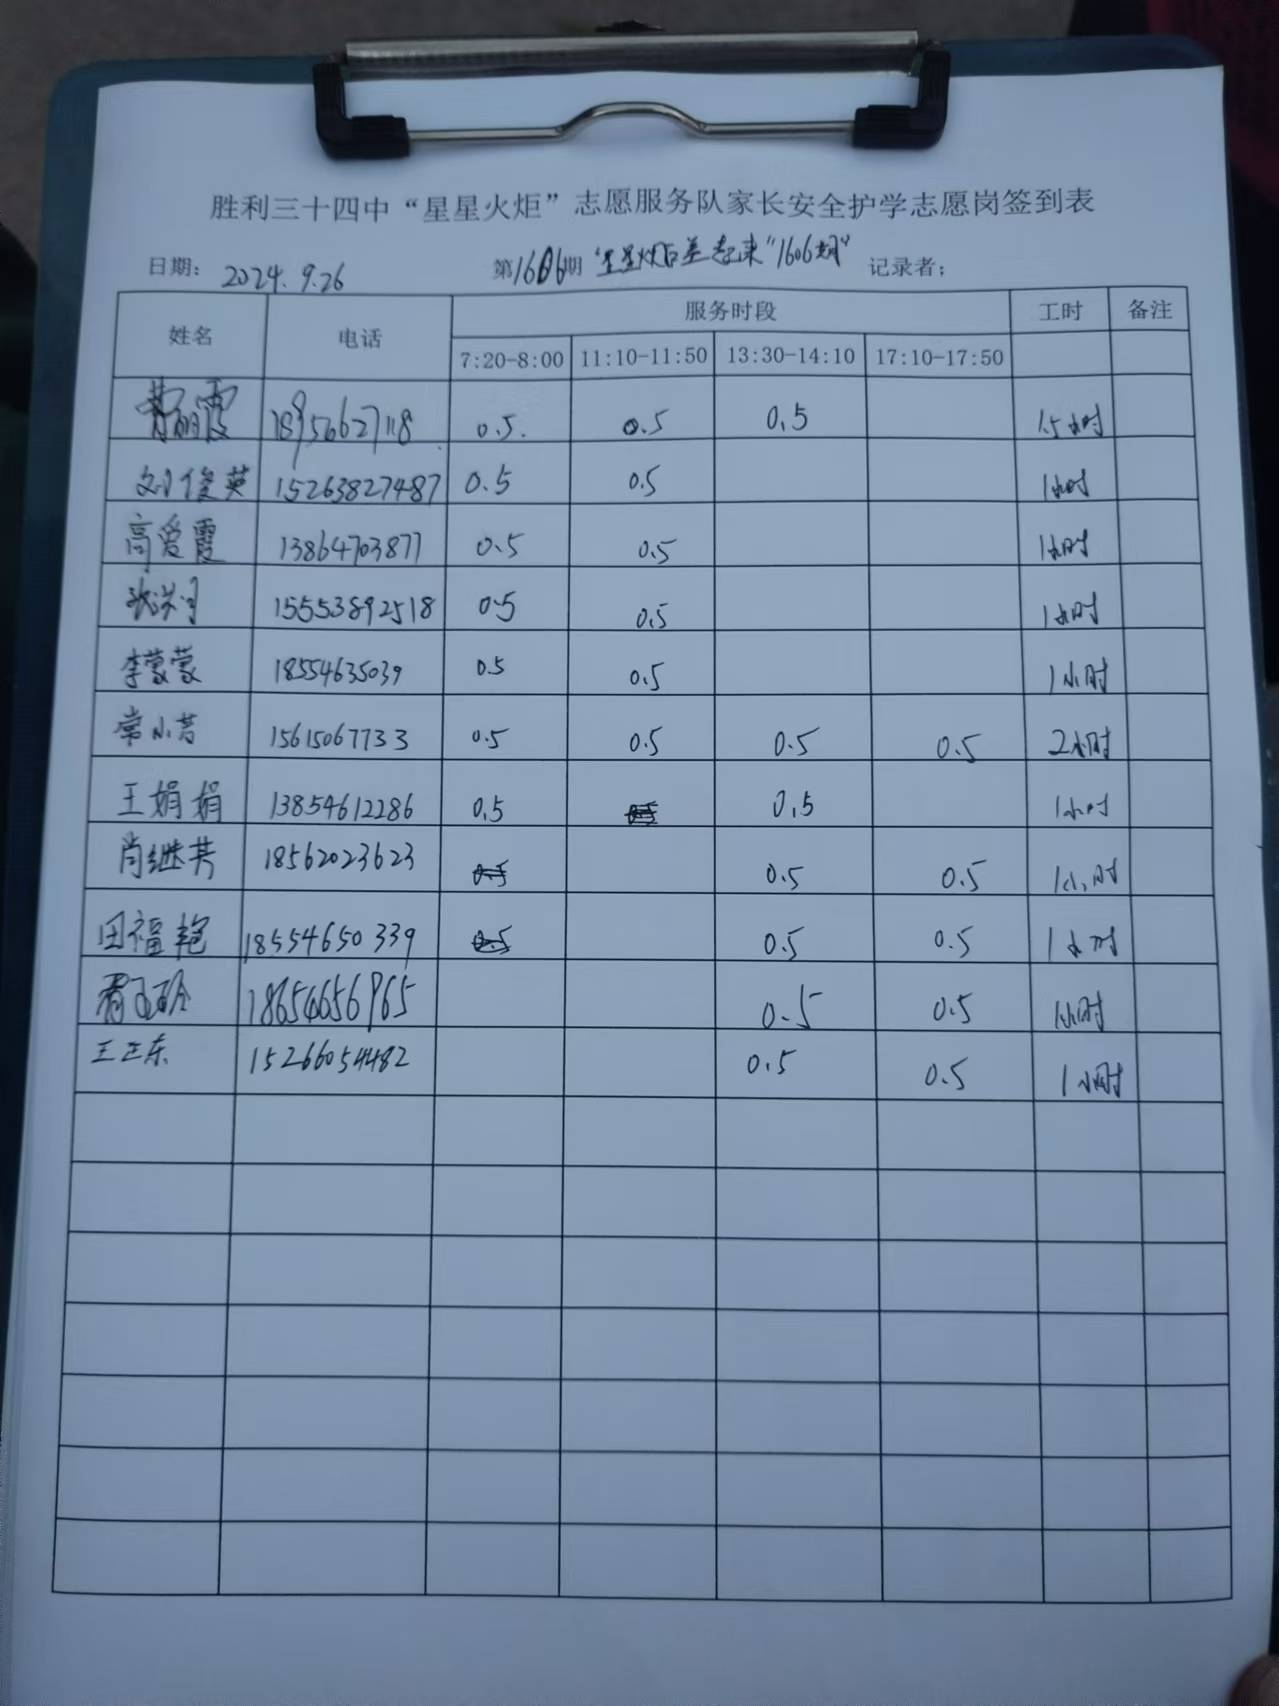 胜利三十四中“星星火炬”志愿服务队家长安全护学志愿岗签到表
日期: 2024.9.26 第1606期 “1606期” 记录者:
姓名 电话 服务时段 工时 备注
7:20-8:00 11:10-11:50 13:30-14:10 17:10-17:50
霞 18956627118 0.5. 0.5 0.5 1.5小时
刘俊英 15263827487 0.5 0.5 1小时
高爱霞 13864703877 0.5 0.5 1小时
15553892518 0.5 0.5 1小时
李蒙蒙 18554635039 0.5 0.5 1小时
常小芳 15615067733 0.5 0.5 0.5 0.5 2小时
王娟娟 13854612286 0.5 0.5 0.5 1小时
肖继芳 18562023623 0.5 0.5 0.5 1小时
田福艳 18554650339 0.5 0.5 0.5 1小时
18654656965 0.5 0.5 1小时
王正东 15266054482 0.5 0.5 1小时